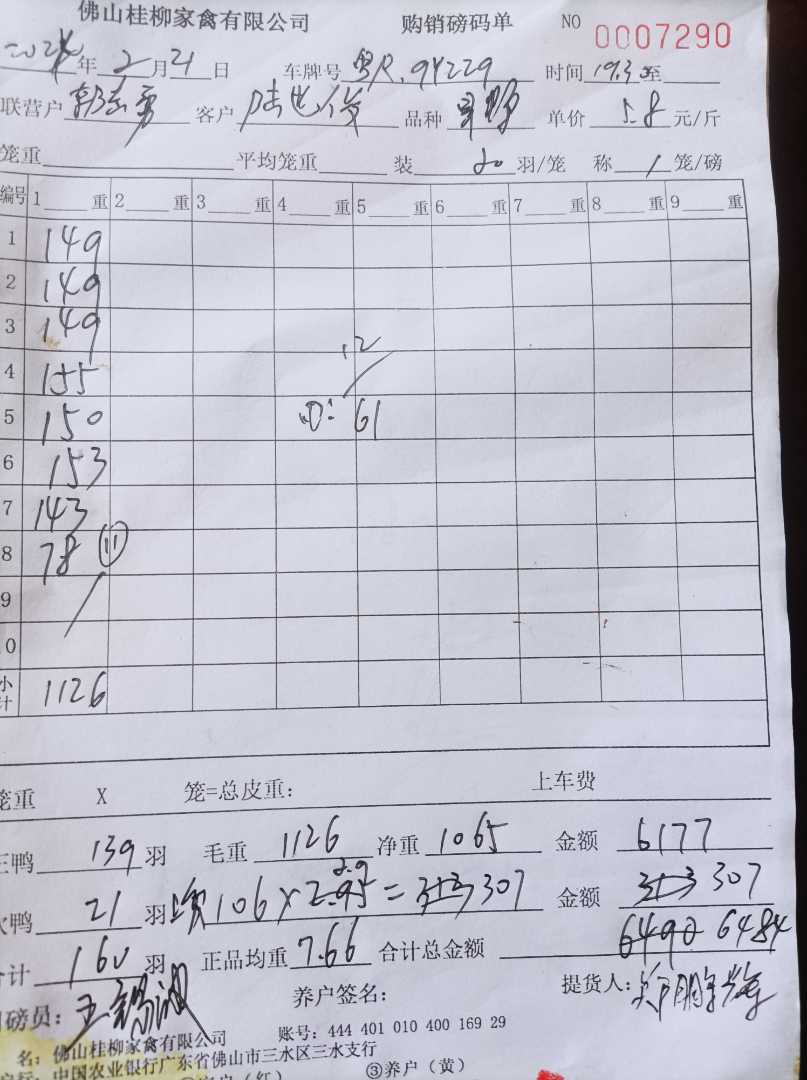 佛山桂柳家禽有限公司 购销磅码单 NO 0007290
2024年2月21日 车牌号 粤R.9Y229 时间 19.30至
联营户 客户 陆 品种 单价 5.8 元/斤
笼重 平均笼重 装 20 羽/笼 称 1 笼/磅
编号 1 重 2 重 3 重 4 重 5 重 6 重 7 重 8 重 9 重
1 149
2 149
3 149
12
4 155
5 150 61
6 153
7 143
8 78 11
9
0
小计 1126
笼重 X 笼=总皮重: 上车费
正鸭 139 羽 毛重 1126 净重 1065 金额 6177
2.9
次鸭 21 羽 106 × 2.95 = 313 307 金额 313 307
合计 160 羽 正品均重 7.66 合计总金额 6490 6484
磅员: 养户签名: 提货人:
名: 佛山桂柳家禽有限公司 账号: 444 401 010 400 169 29
中国农业银行广东省佛山市三水区三水支行
客户(红) ③养户(黄)